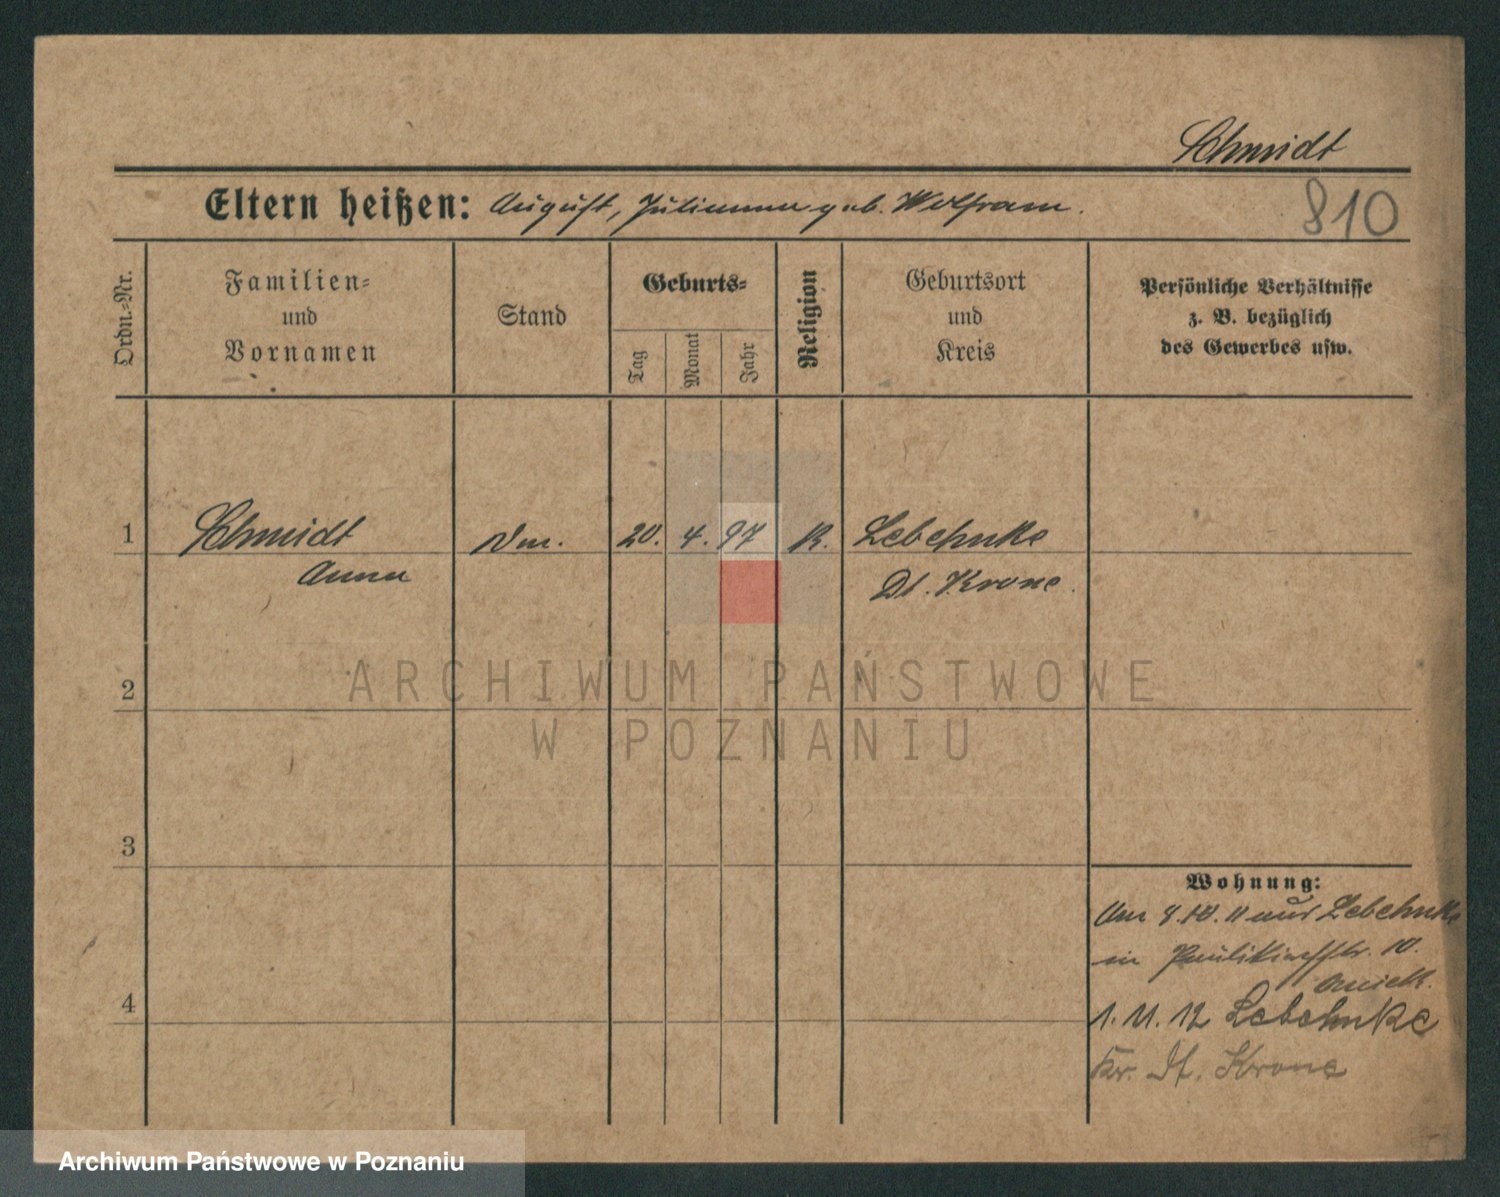 Schmidt
Eltern heißen: August, Julianna geb. Wolfram.
810
Ordn.=Nr.
Familien=
und
Vornamen
Stand
Geburts=
Tag
Monat
Jahr
Religion
Geburtsort
und
Kreis
Persönliche Verhältnisse
z. B. bezüglich
des Gewerbes usw.
1 Schmidt 20. 4. 97 K. Lebehnke
Anna Dt. Krone.
2
ARCHIWUM PAŃSTWOWE
W POZNANIU
3
Wohnung:
Am 8.10.11 aus Lebehnke
in Paulikirchstr. 10.
4
1. 11. 12 Lebehnke
Kr. Dt. Krone
Archiwum Państwowe w Poznaniu